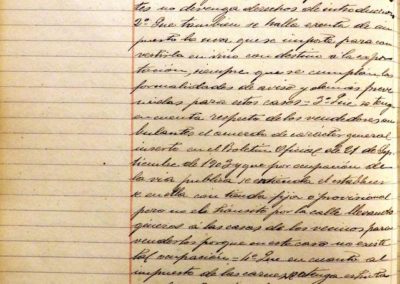 tes no devenga derechos de introducción
2º Que tambien se halla exenta de im
puesto la uva que se importe para con
vertirla en vino con destino a la expor
tación, siempre que se cumplan las
formalidades de aviso y demas preve
nidas para estos casos = 3º Que se tenga
en cuenta respecto de los vendedores am
bulantes el acuerdo de carácter general
inserto en el Boletin Oficial de 21 de Sep
tiembre de 1903 y que por ocupación de
la via publica se entienda el establecer
se en ella con tienda fija o provisional
pero no el transito por la calle llevando
géneros a las casas de los vecinos para
venderlos porque en este caso no existe
tal ocupación = 4º Que en cuanto al
impuesto de las carnes se tenga